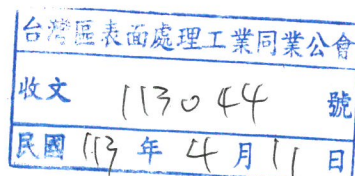 台灣區表面處理工業同業公會
收文 113044 號
民國 113 年 4 月 11 日